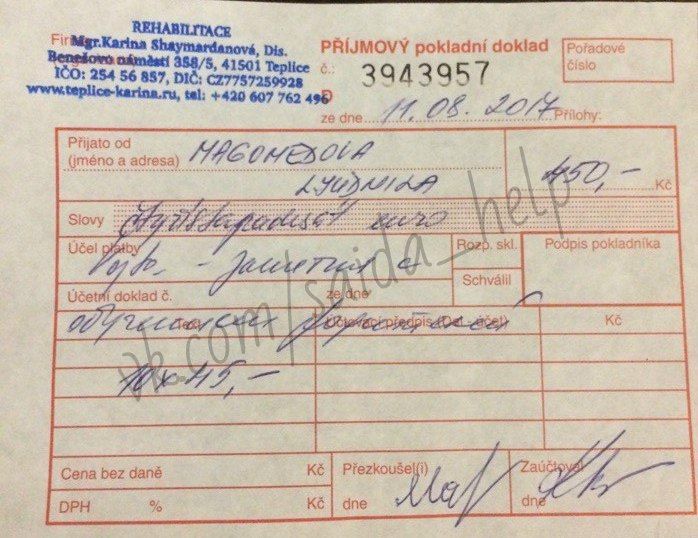 REHABILITACE
Mgr.Karina Shaymardanová, Dis.
Benešovo náměstí 358/5, 41501 Teplice
IČO: 254 56 857, DIČ: CZ7757259928
www.teplice-karina.ru, tel: +420 607 762 496
PŘÍJMOVÝ pokladní doklad
č.: 3943957
ze dne 11.08.2017 Přílohy:
Pořadové
číslo
Přijato od
(jméno a adresa) MAGOMEDOVA
LYUDMILA
450,- Kč
Slovy euro
Účel platby
Rozp. skl.
Podpis pokladníka
Schválil
Účetní doklad č. ze dne
Text Účtovací předpis (Dal - účet) Kč
10x45,-
Cena bez daně Kč
Přezkoušel(i)
Zaúčtoval
DPH % Kč
dne
dne
vk.com/saida_help